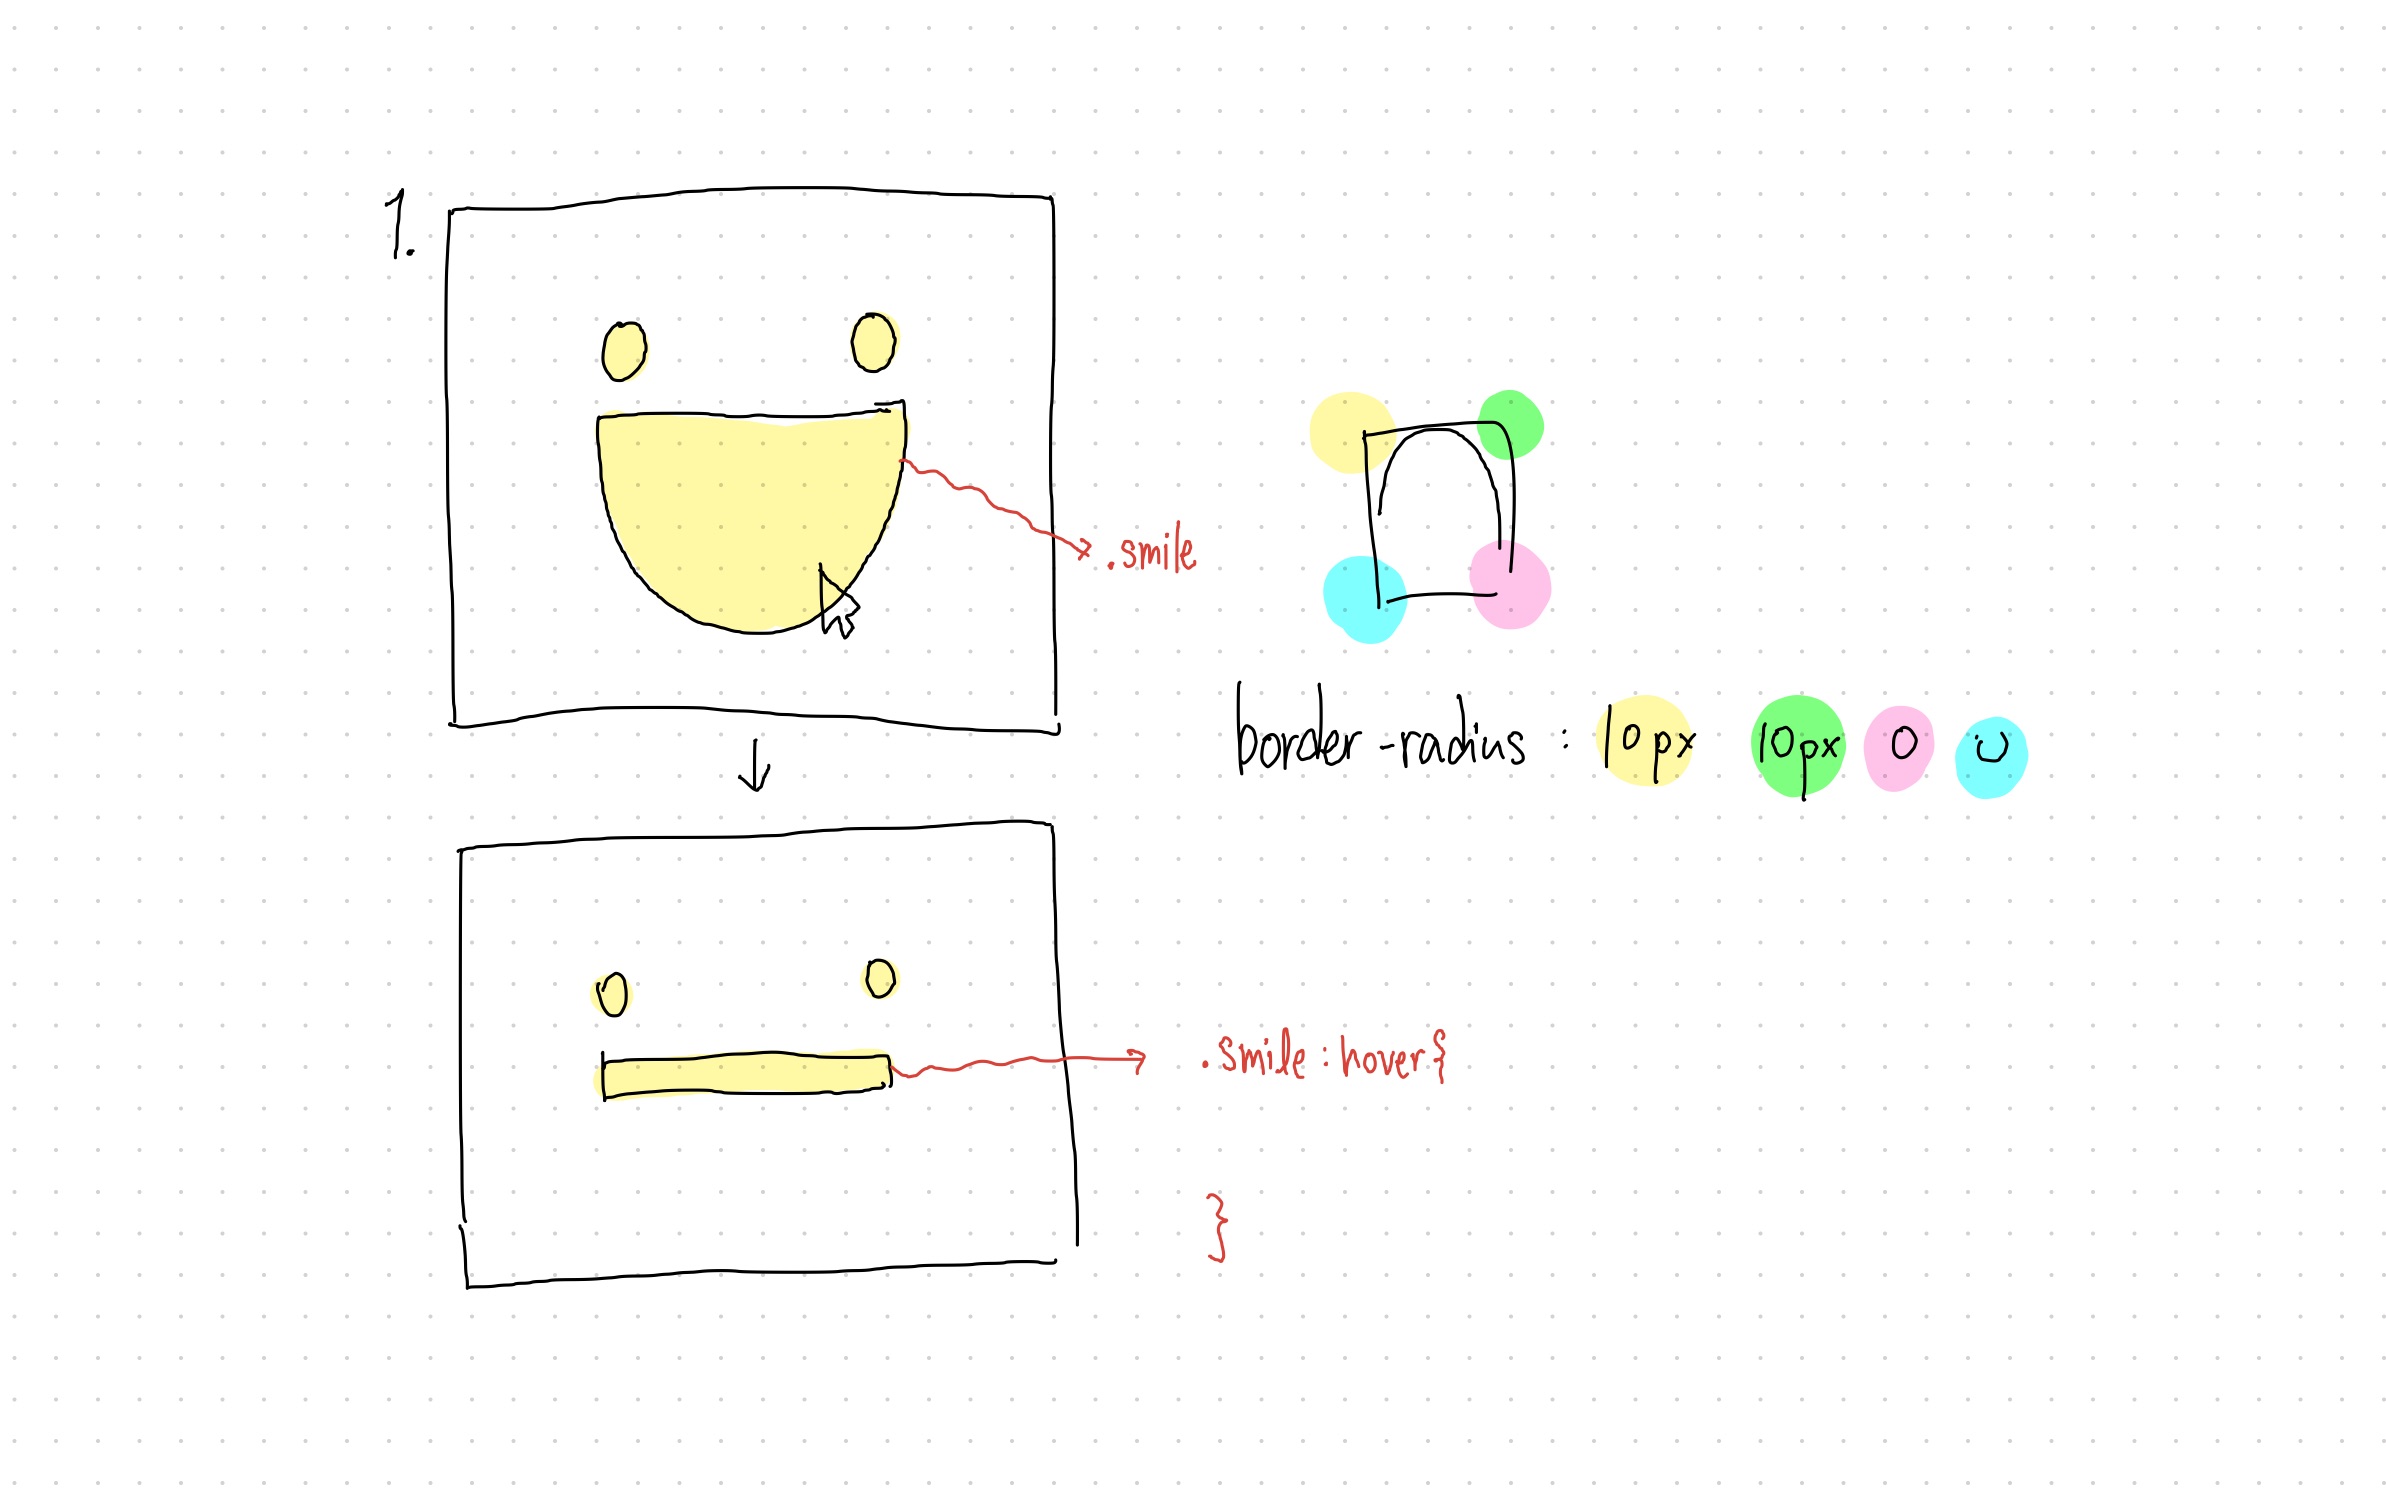 1.
.smile
border-radius: 10px 10px 0 0
.smile:hover{
}